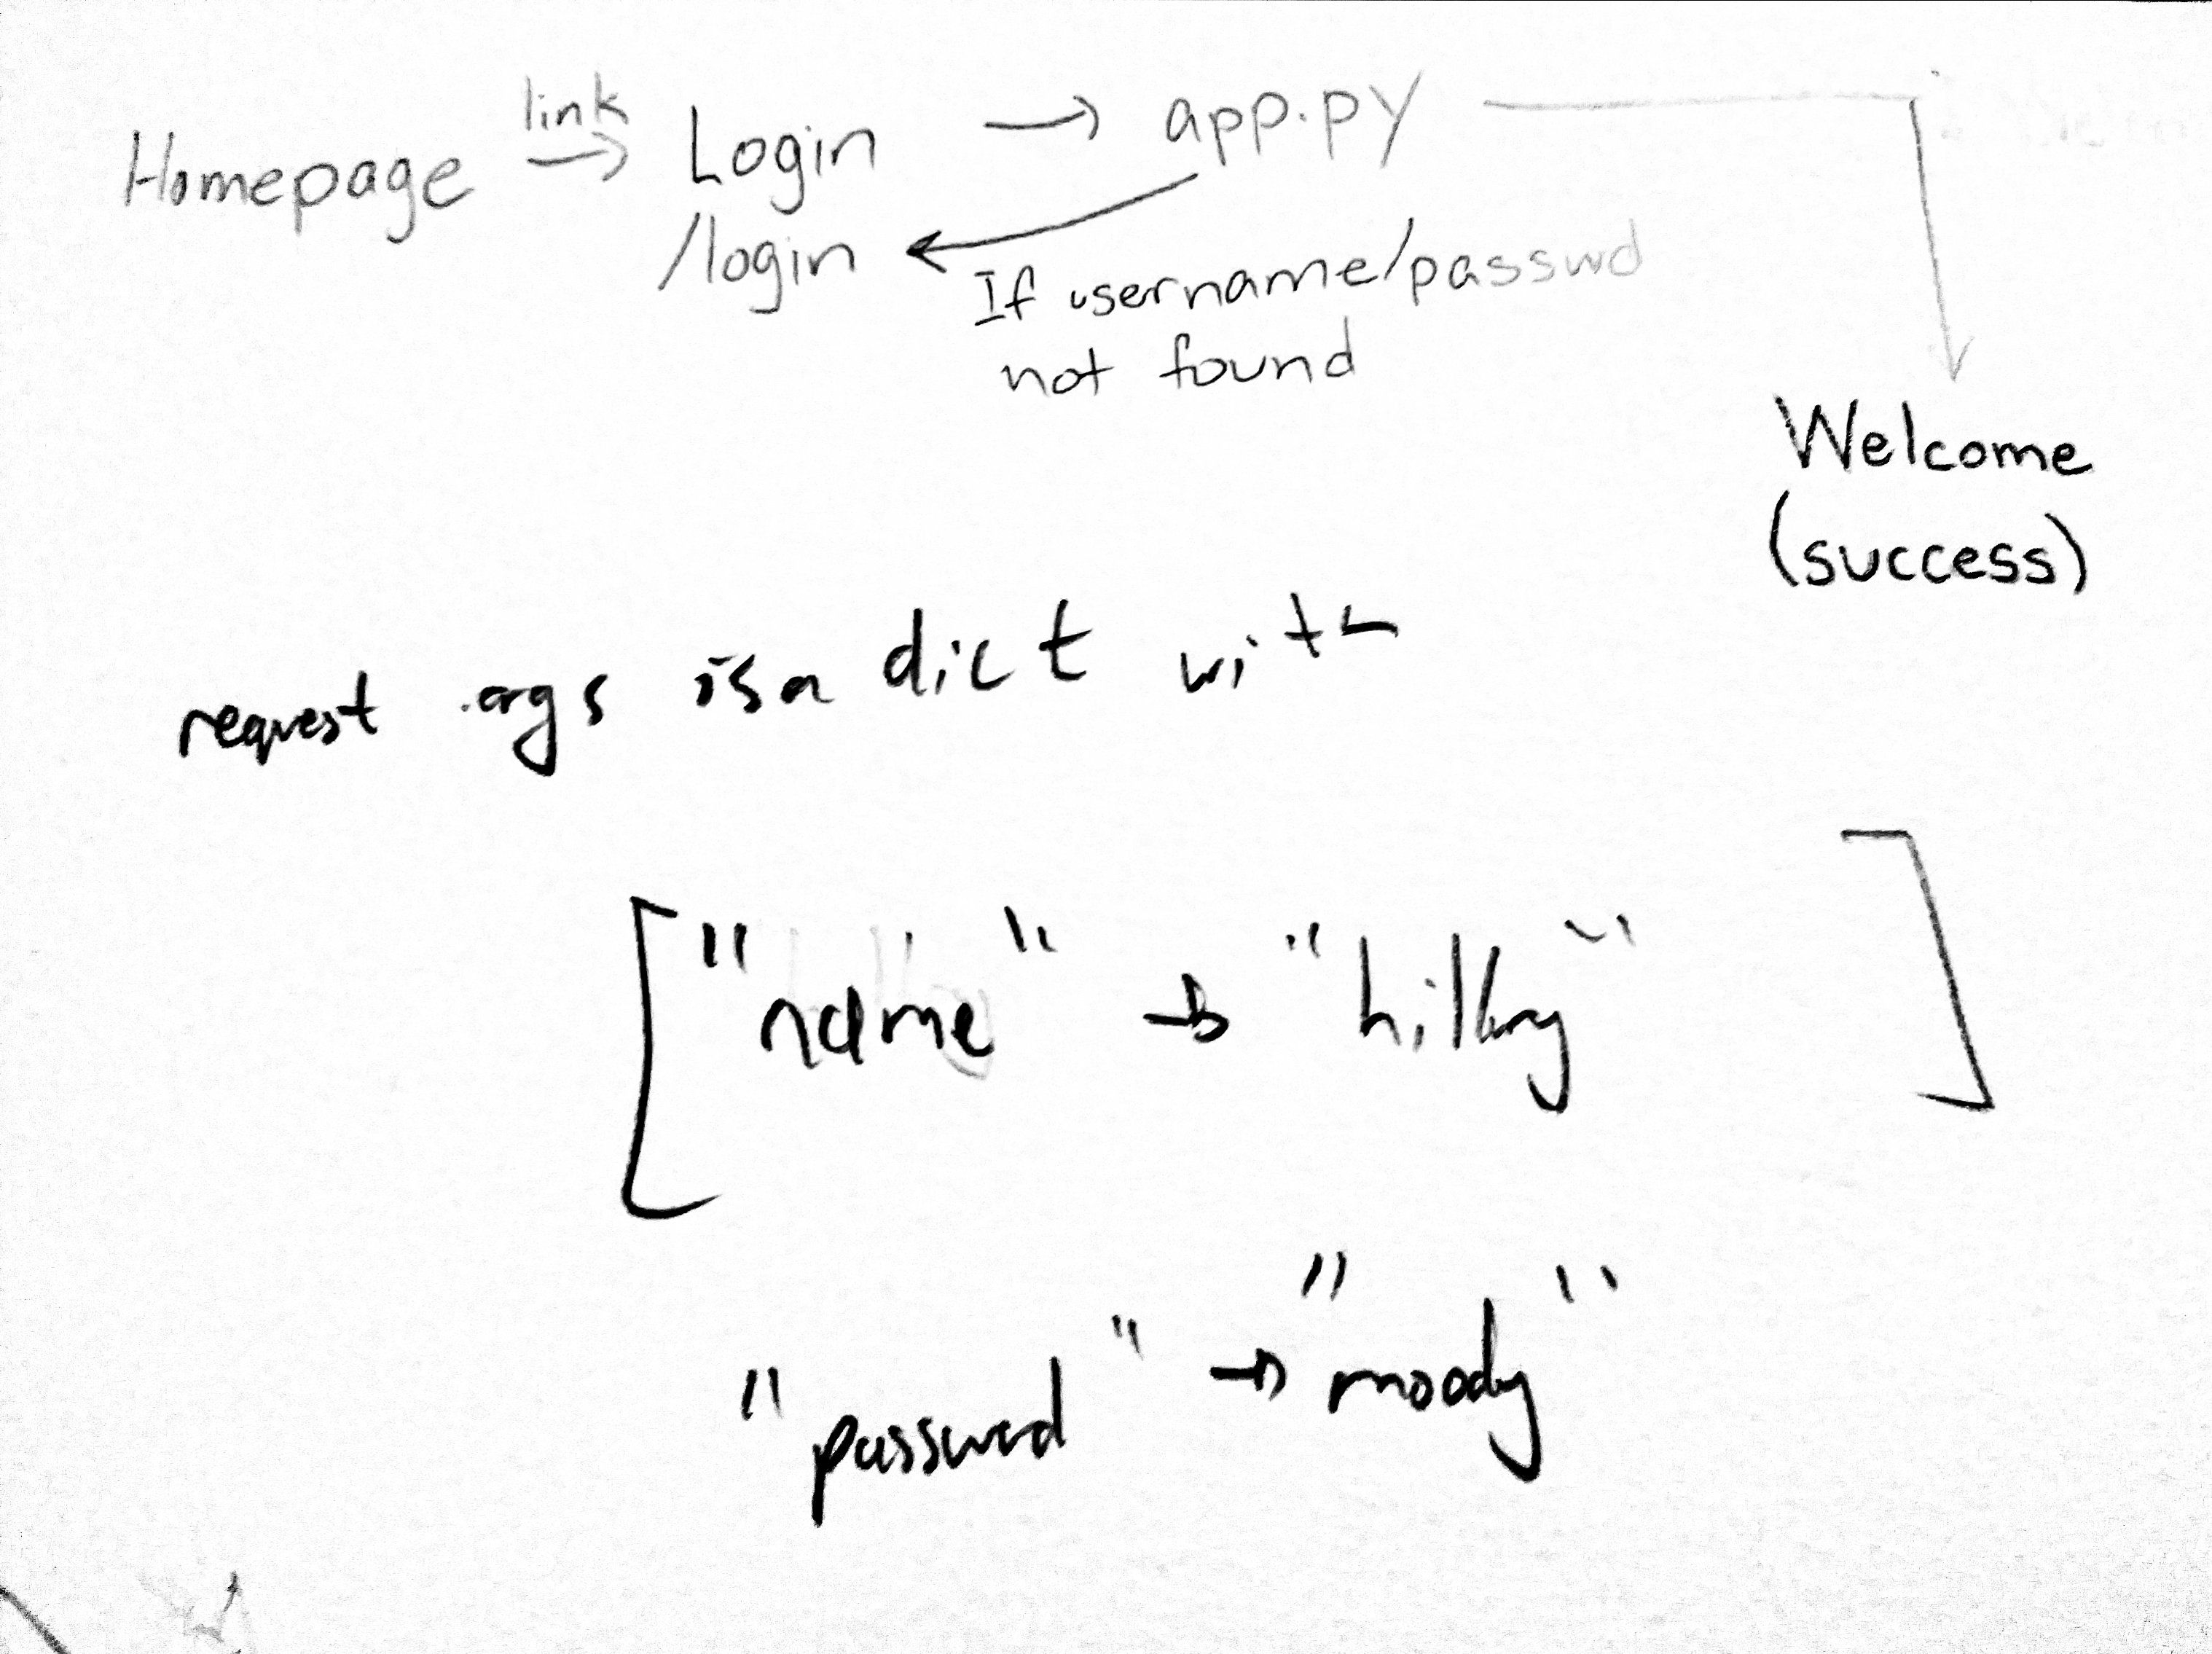 Homepage link → Login → app.py
/login ← If username/passwd
not found
Welcome
(success)
request .args is a dict with
["name" → "hillary"]
"password" → "moody"